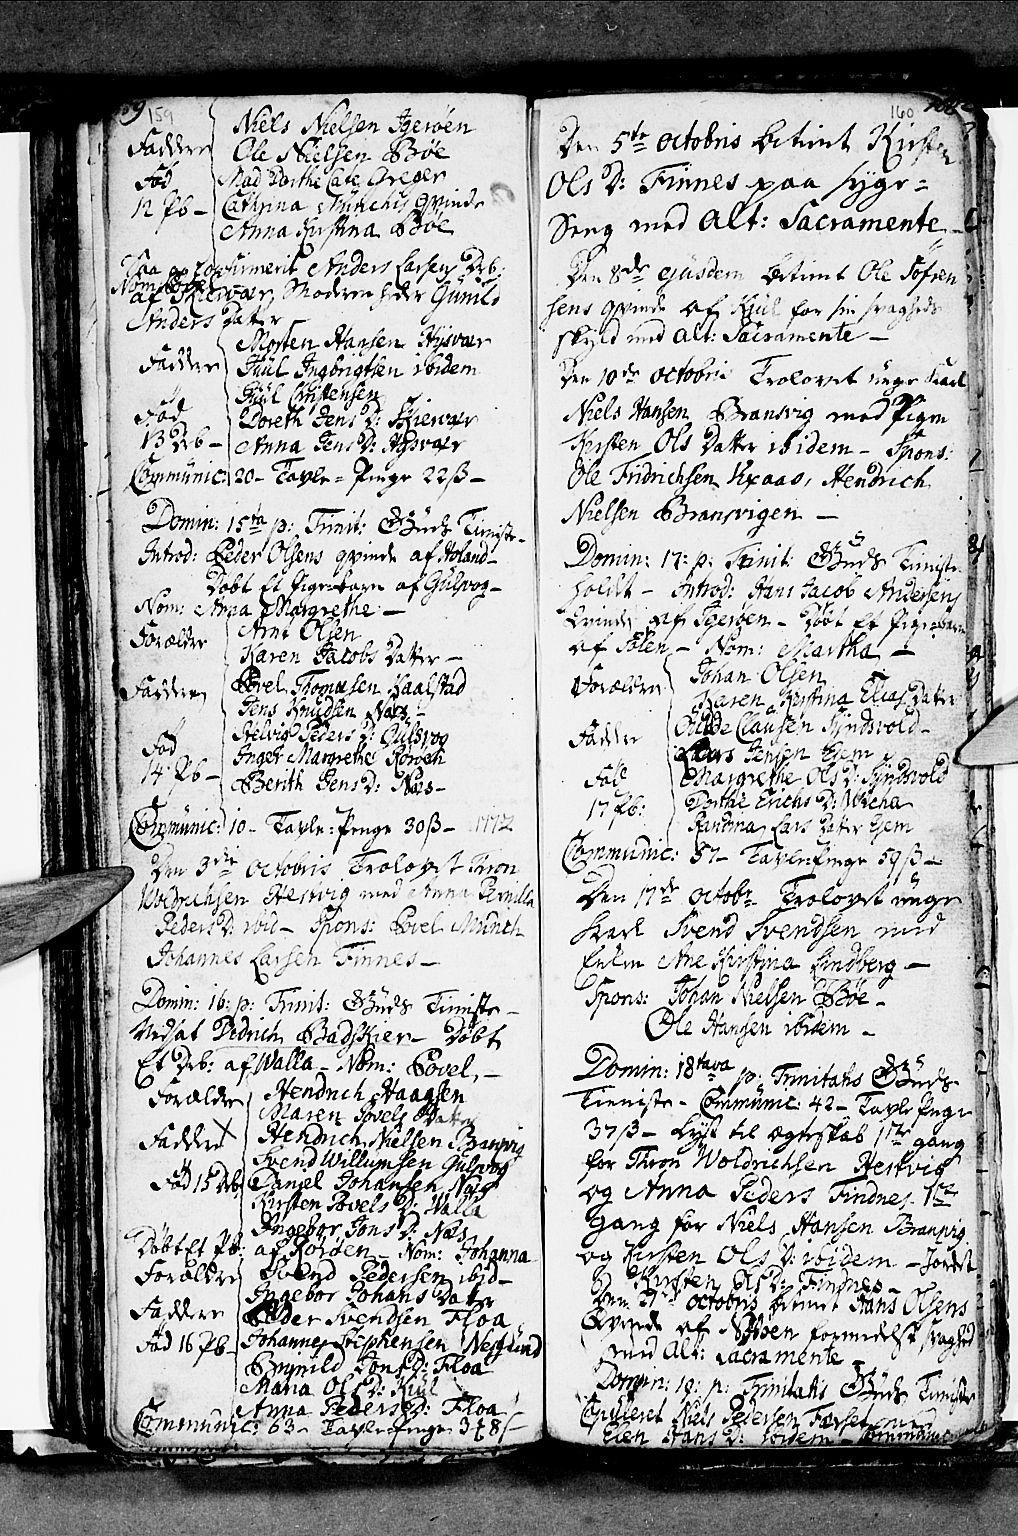 159
Niels Nielsen Igerøen
Faddere Ole Nielsen Bøe
Fød Mad Dorthe Cate Greger
12 Pb – Cathrina Münchis Qvinde
Anna Kirstina Bøe
Confirmerit Anders Larsens Drb:
af Skiervær, Moderen heder Gunild
Anders Datter
Morten Hansen Hysvær
Faddere Juul Ingbrigtsen ibidem
Juul Christensen
Fød Doreth Jens D: Skiervær
13 Drb – Anna Jens D: Hysvær
Communic: 20 – Tavle-Penge 22 ß –
Domin: 15ta p: Trinit: Guds Tieniste –
Introd: Peder Olsens Qvinde af Holand –
Døbt Et Pigebarn af Gulsvog –
Nom: Anna Margrethe –
Forældre Arnt Olsen
Karen Jacobs Datter –
Faddere Povel Thomesen Kaalstad
Jens Knudsen Næs –
Helvig Peders D: Gulsvog
Fød Inger Margrethe Rørøen
14 Pb – Berith Jens D: Næs –
Communic: 10 – Tavle: Penge 30 ß – 1772
Den 3die Octobris Trolovet Thron
Woldrichsen Hestvig med Anna Pernilla
Peders D: ibid – Spons: Povel Münch
Johannes Larsen Finnes –
Domin: 16: p: Trinit: Guds Tieniste –
Vedsat Didrich Badskier – Døbt
Et Drb: af Walla – Nom: Povel, –
Forældre Hendrich Haagsen
Maren Povels Datter
Faddere Hendrich Nielsen Bransvig
Svend Willumsen Gulsvog
Fød 15 Drb Daniel Johansen Næss
Kirsten Povels D: Walla
Ingebor Jons D: Næs
Døbt Et Pb: af Rørøen – Nom: Johanna
Forældre Svend Pedersen ibid –
Ingebor Johans Datter
Faddere Peder Svendsen Floa
Fød 16 Pb – Johannes Stephensen Nesslund
Brynild Jons D: Floa
Maria Ols D: Kiul
Anna Peders D: Floa
Communic: 63 – Tavle-Penge 378 ß
160
Den 5te Octobris betient Kirsten
Ols D: Finnes paa Syge-
Seng med Alt: Sacramente –
Den 8de ejusdem betient Ole Tofsen
sens Qvinde af Kiul for sin Svagheds
skyld med Alt: Sacramente –
Den 10de Octobris Trolovet unge Karl
Niels Hansen Bransvig med Pigen
Kirsten Ols Datter ibidem – Spons:
Ole Fridrichsen Hendrich
Nielsen Bransvigen –
Domin: 17: p: Trinit: Guds Tieniste
holdt – Introd: Hans Jacob Andersens
Qvinde af Igerøen – Døbt Et Pigebarn
af Tolen – Nom: Martha –
Forældre Johan Olsen
Karen Kirstina Elias Datter
Faddere Odde Clausen Tyndsvold –
Lars Jensen Hiem
Fød Margrethe Ols D: Tyndsvold
17 Pb: Dorthe Erichs D: Wicha
Randina Lars Datter Hiem
Communic: 57 – Tavle-Penge 59 ß –
Den 17de Octobr: Trolovet unge
Karl Svend Svendsen med
Enken Ane Kirstina Lindberg –
Spons: Johan Nielsen Bøe –
Ole Hansen ibidem –
Domin: 18tava p: Trinitatis Guds
Tieniste – Communic: 42 – Tavle Penge
37 ß – Lyst til Ægteskab 1ste gang
for Thron Woldrichsen Hestvig
og Anna Peders Findnes – 1ste
gang for Niels Hansen Bransvig
og Kirsten Ols D: ibidem – Jordet
Kirsten Ols D: Finnes –
Den 21de Octobris betient Hans Olsens
Qvinde af formedelst Svaghed
med Alt: Sacramente –
Domin: 19: p: Trinitatis Guds Tieniste
Copuleret Niels Pedersen med
Elen Hans D: ibidem – Communic